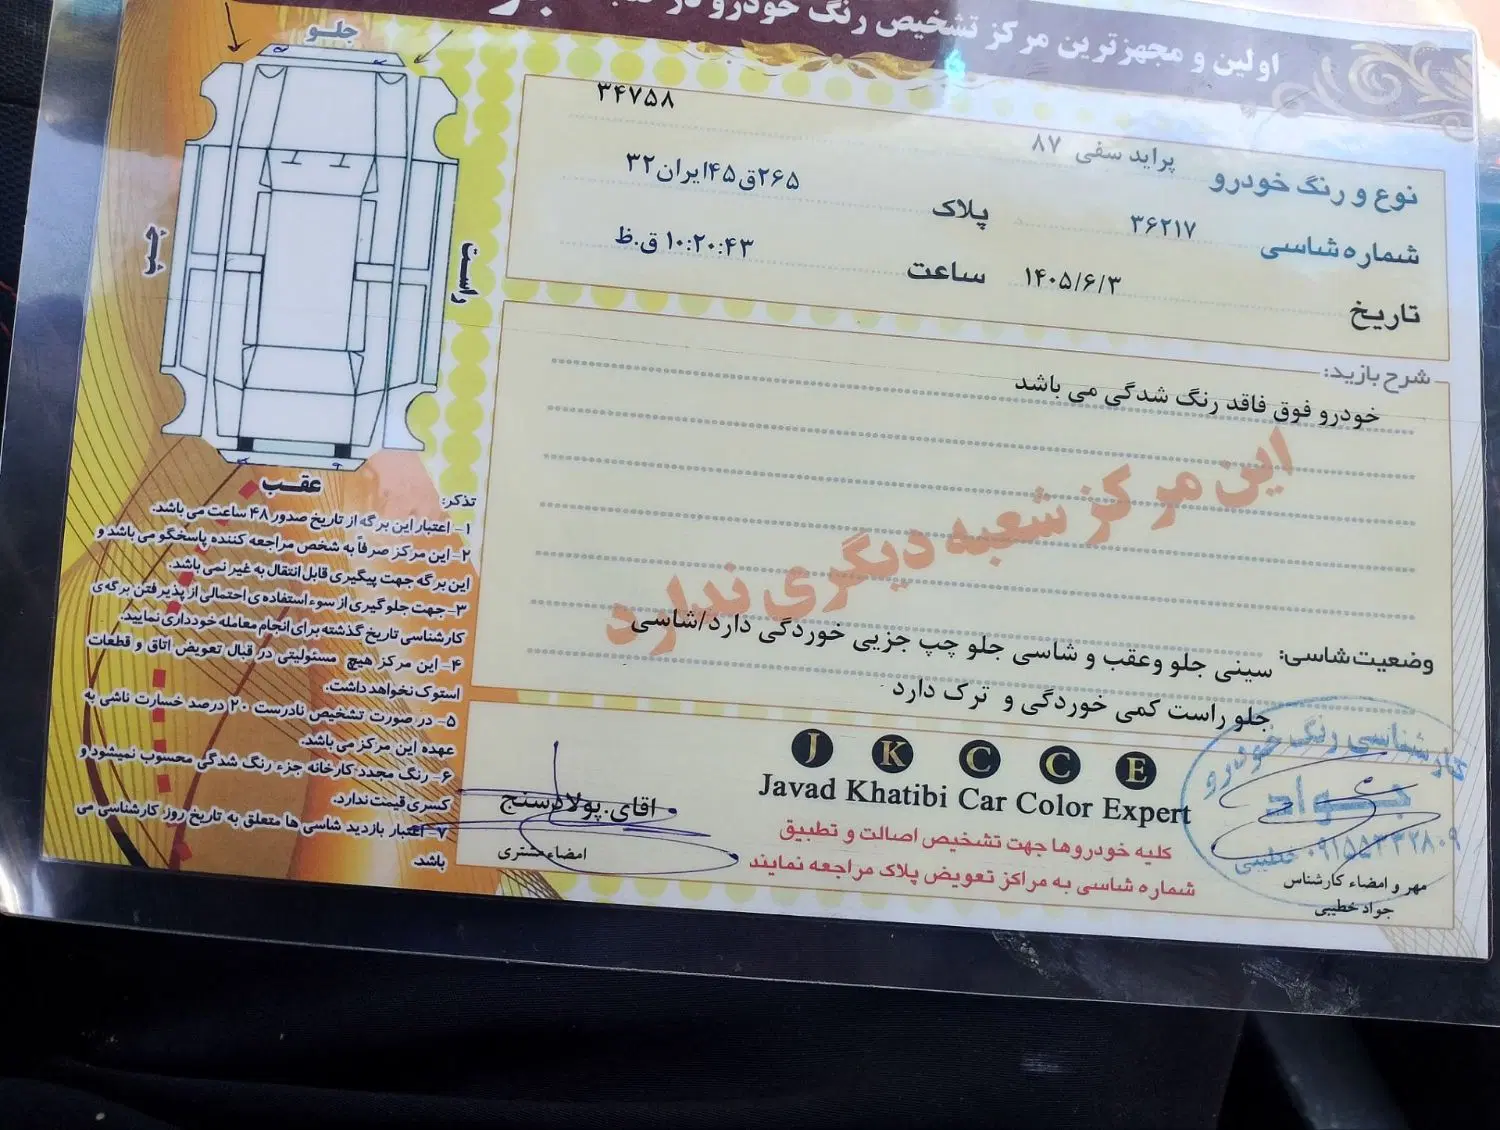 اولین و مجهزترین مرکز تشخیص رنگ خودرو در
۳۴۷۵۸
نوع و رنگ خودرو پراید سفی ۸۷
شماره شاسی ۳۶۲۱۷ پلاک ۲۶۵ق۴۵ایران۳۲
تاریخ ۱۴۰۵/۶/۳ ساعت ۱۰:۲۰:۴۳ ق.ظ
شرح بازید:
خودرو فوق فاقد رنگ شدگی می باشد
این مرکز شعبه دیگری ندارد
وضعیت شاسی: سینی جلو وعقب و شاسی جلو چپ جزیی خوردگی دارد/شاسی
جلو راست کمی خوردگی و ترک دارد
J K C C E
Javad Khatibi Car Color Expert
کلیه خودروها جهت تشخیص اصالت و تطبیق
شماره شاسی به مراکز تعویض پلاک مراجعه نمایند
کارشناسی رنگ خودرو
جواد
خطیبی
مهر و امضاء کارشناس
جواد خطیبی
اقای.پولادسنج
امضاء مشتری
جلو
راست
چپ
عقب
تذکر:
۱- اعتبار این برگه از تاریخ صدور ۴۸ ساعت می باشد.
۲- این مرکز صرفاً به شخص مراجعه کننده پاسخگو می باشد و
این برگه جهت پیگیری قابل انتقال به غیر نمی باشد.
۳- جهت جلوگیری از سوء استفاده ی احتمالی از پذیرفتن برگه ی
کارشناسی تاریخ گذشته برای انجام معامله خودداری نمایید.
۴- این مرکز هیچ مسئولیتی در قبال تعویض اتاق و قطعات
استوک نخواهد داشت.
۵- در صورت تشخیص نادرست ۲۰ درصد خسارت ناشی به
عهده این مرکز می باشد.
۶- رنگ مجدد کارخانه جزء رنگ شدگی محسوب نمیشود و
کسری قیمت ندارد.
۷- اعتبار بازدید شاسی ها متعلق به تاریخ روز کارشناسی می
باشد.